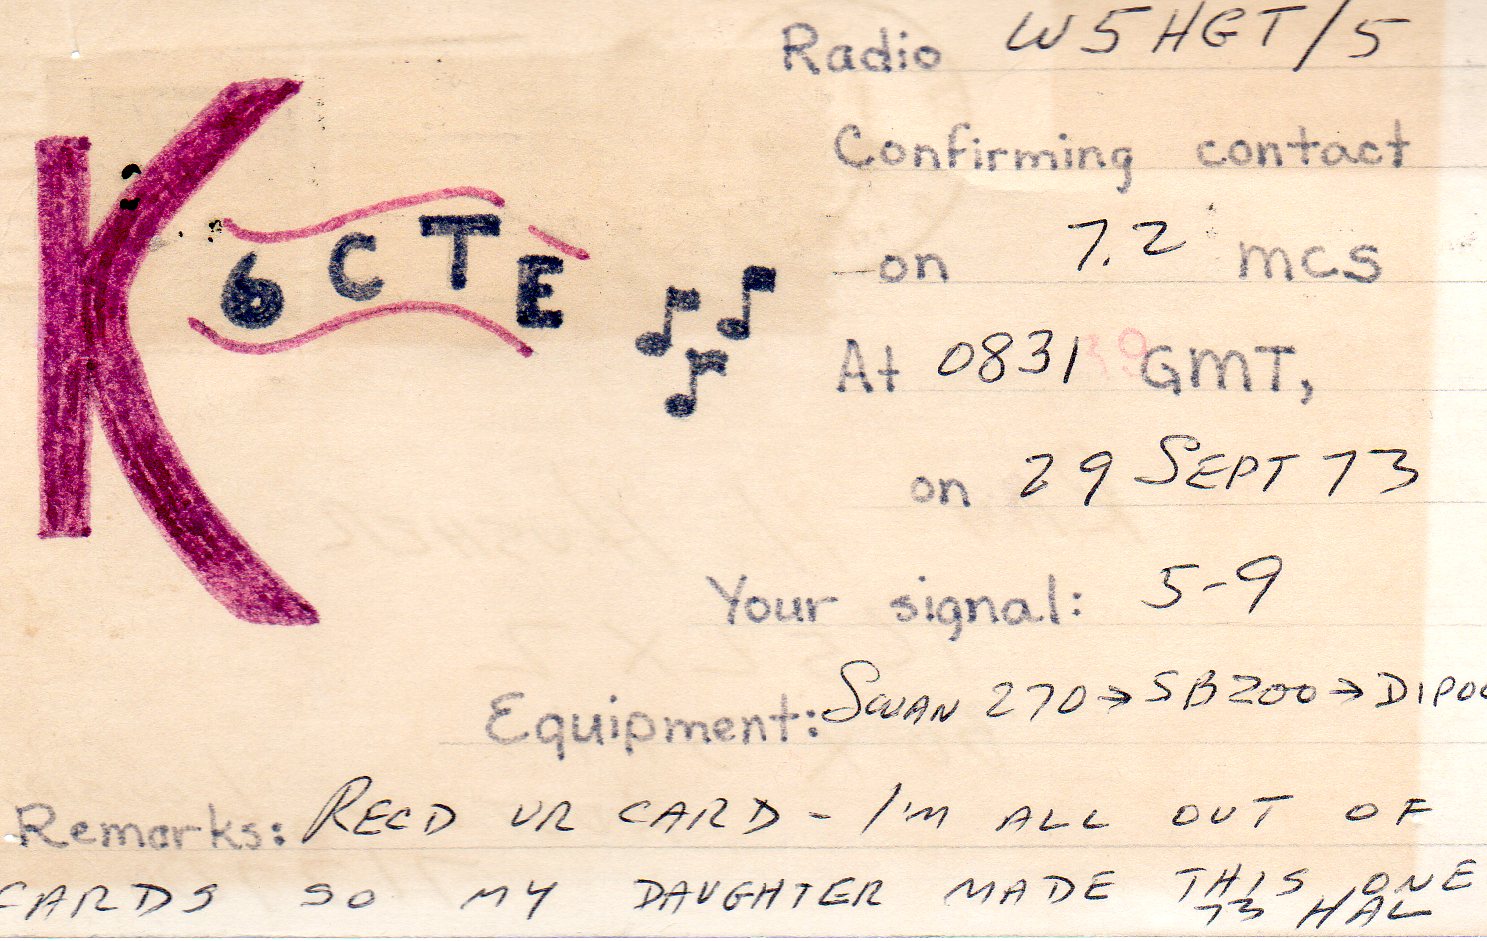 Radio W5HGT/5
K6CTE
Confirming contact
on 7.2 mcs
At 0831 GMT,
on 29 SEPT 73
Your signal: 5-9
Equipment: SWAN 270→SB200→DIPOL
Remarks: RECD UR CARD - I'M ALL OUT OF
CARDS SO MY DAUGHTER MADE THIS ONE
73 HAL